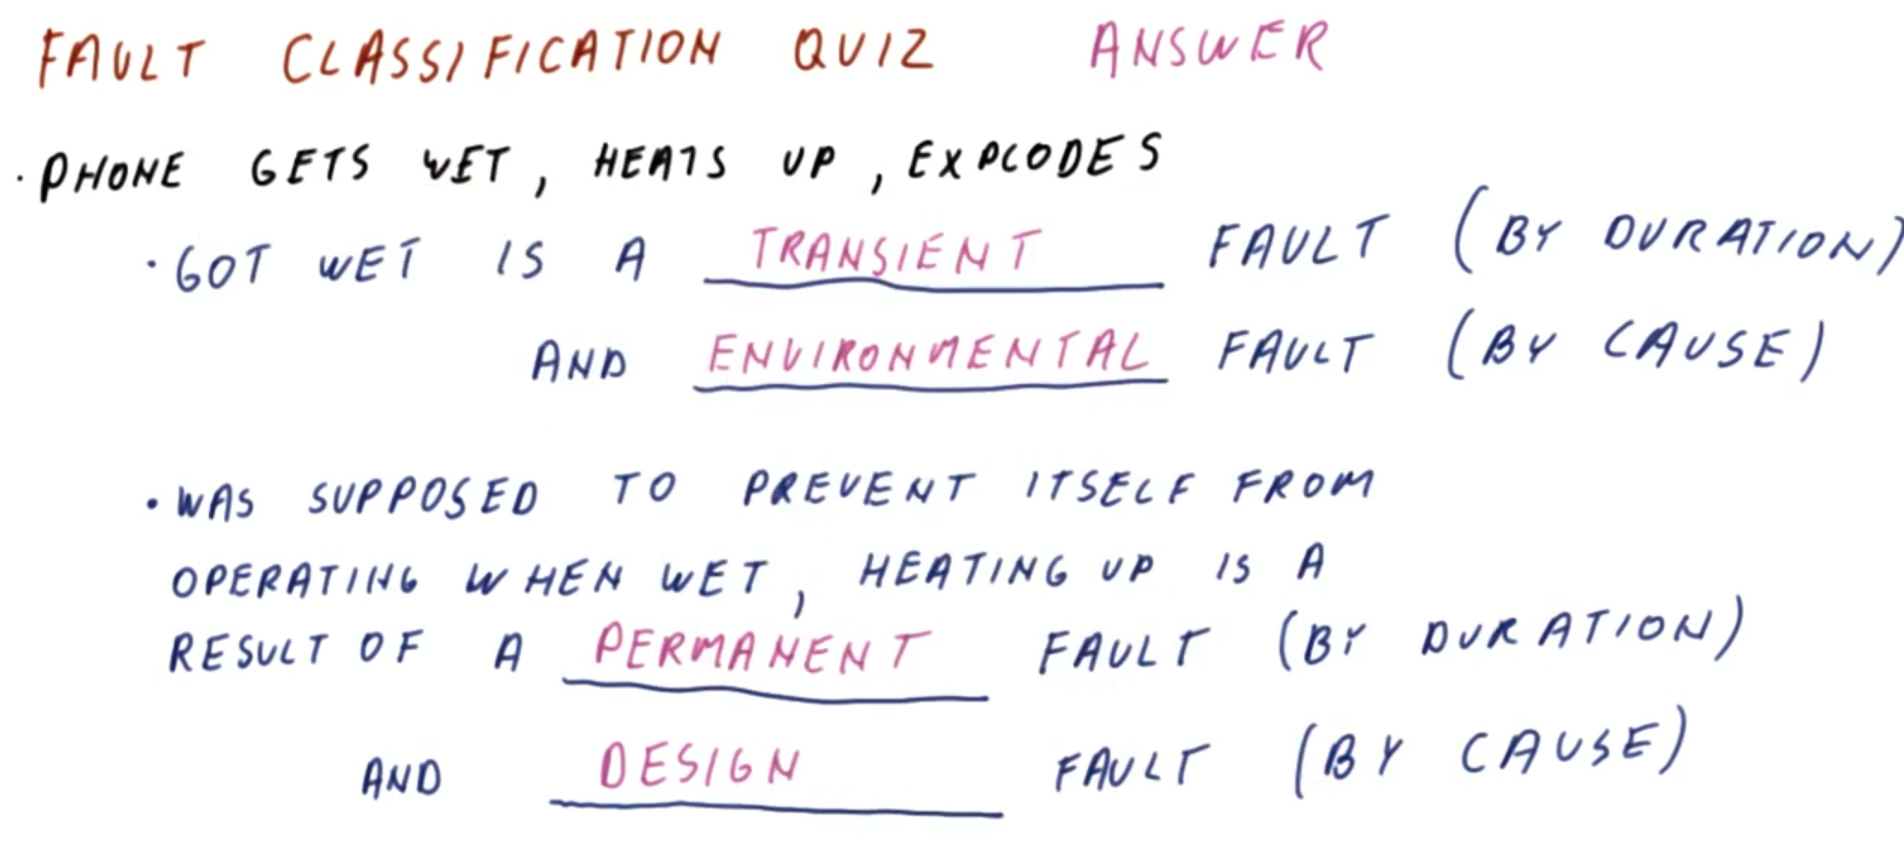 FAULT CLASSIFICATION QUIZ ANSWER
· PHONE GETS WET, HEATS UP, EXPLODES
· GOT WET IS A TRANSIENT FAULT (BY DURATION)
AND ENVIRONMENTAL FAULT (BY CAUSE)
· WAS SUPPOSED TO PREVENT ITSELF FROM
OPERATING WHEN WET, HEATING UP IS A
RESULT OF A PERMANENT FAULT (BY DURATION)
AND DESIGN FAULT (BY CAUSE)